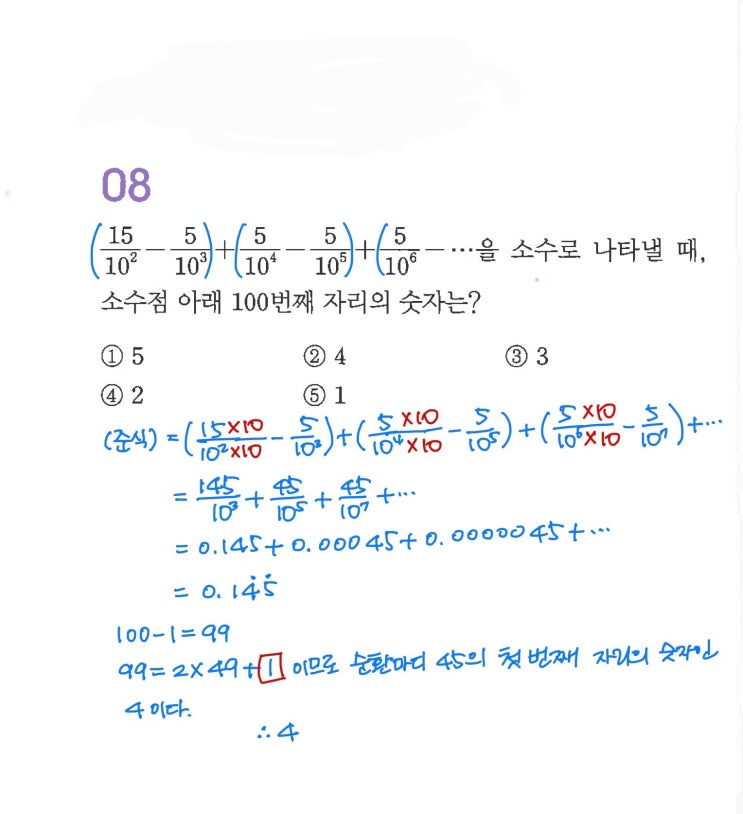 08
(15/10² − 5/10³)+(5/10⁴ − 5/10⁵)+(5/10⁶ − ⋯을 소수로 나타낼 때,
소수점 아래 100번째 자리의 숫자는?
① 5 ② 4 ③ 3
④ 2 ⑤ 1
(준식) = (15×10/10²×10 − 5/10³)+(5×10/10⁴×10 − 5/10⁵)+(5×10/10⁶×10 − 5/10⁷)+⋯
= 145/10³ + 45/10⁵ + 45/10⁷ +⋯
= 0.145+0.00045+0.0000045+⋯
= 0.14̇5̇
100-1=99
99=2×49+1 이므로 순환마디 45의 첫 번째 자리의 숫자인
4이다.
∴4